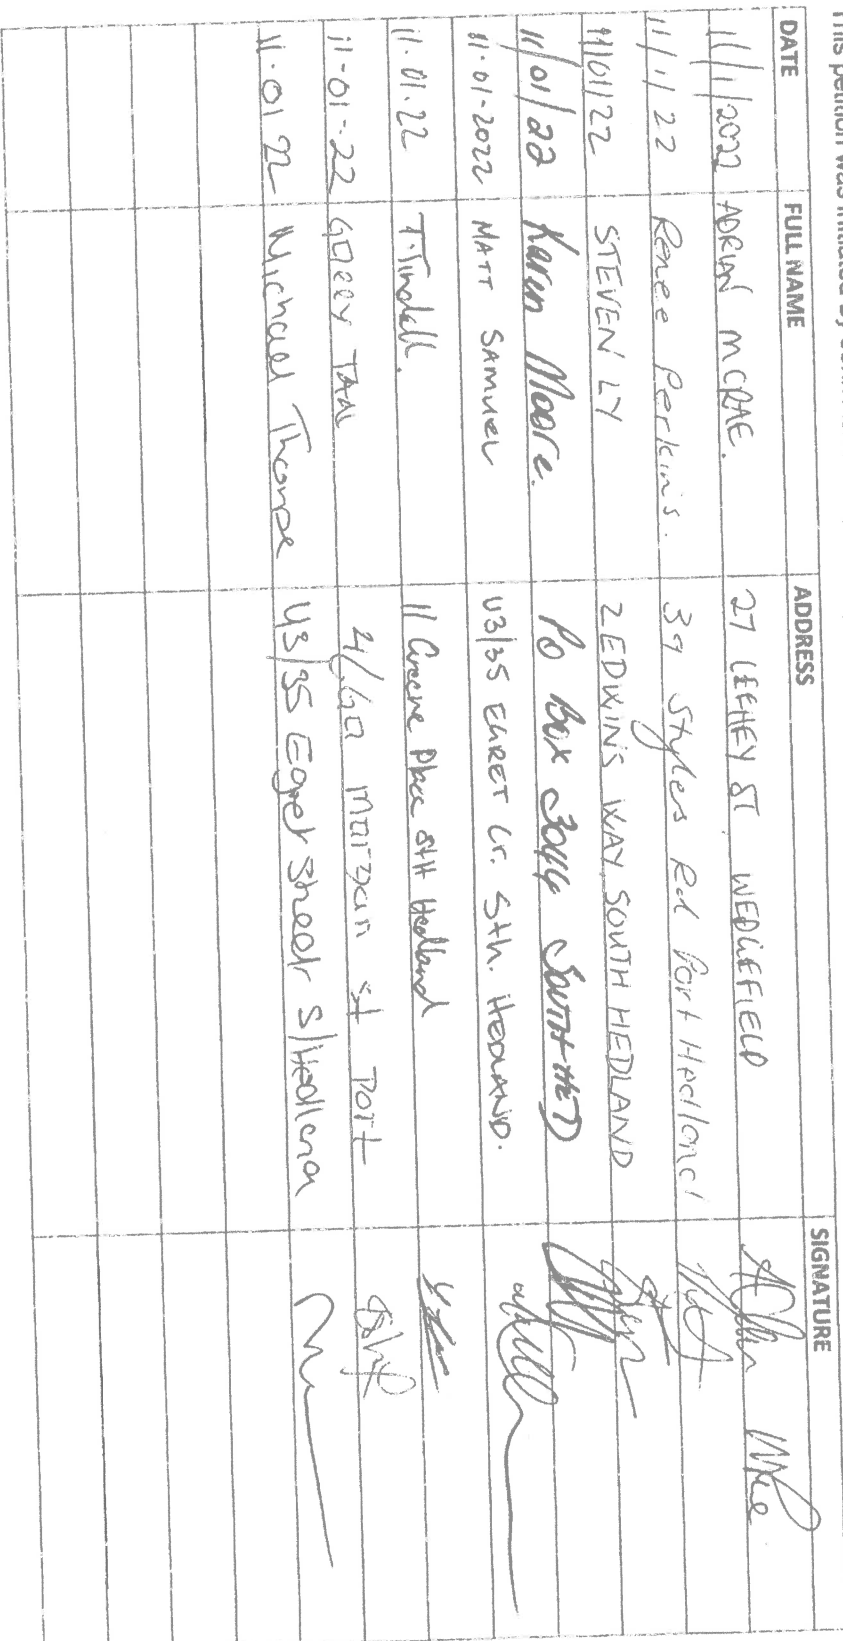 This petition was initiated by
DATE FULL NAME ADDRESS SIGNATURE
11/1/2022 ADRIAN MCRAE. 27 LEEHEY ST WEDGEFIELD
11/1/22 Renee Perkins. 39 Styles Rd Port Hedland
11/01/22 STEVEN LY 2 EDKINS WAY SOUTH HEDLAND
11/01/22 Karen Moore. PO Box 3044 SOUTH HED
11-01-2022 MATT SAMUEL U3/35 EGRET Cr. Sth. HEDLAND.
11.01.22 T.Tindall. 11 Greene Place Sth Hedland
11-01-22 GERRY TAN 4/60 Morgan St Port
11.01 22 Michael Thorpe 43/35 Egret Street S/Hedland